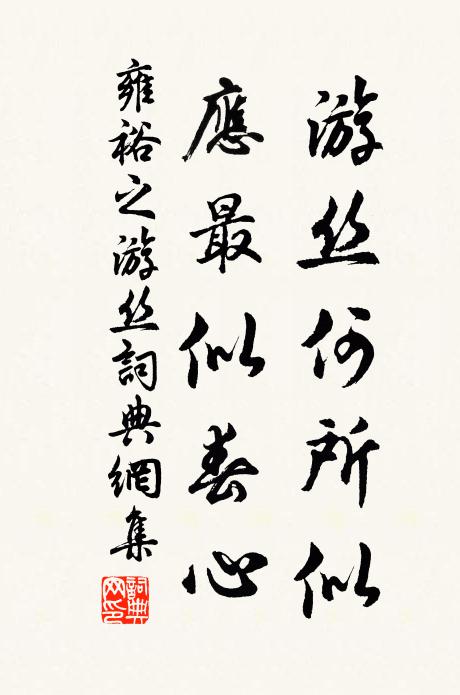 游丝何所似
應最似春心
雍裕之游丝詞典網集
詞典网印